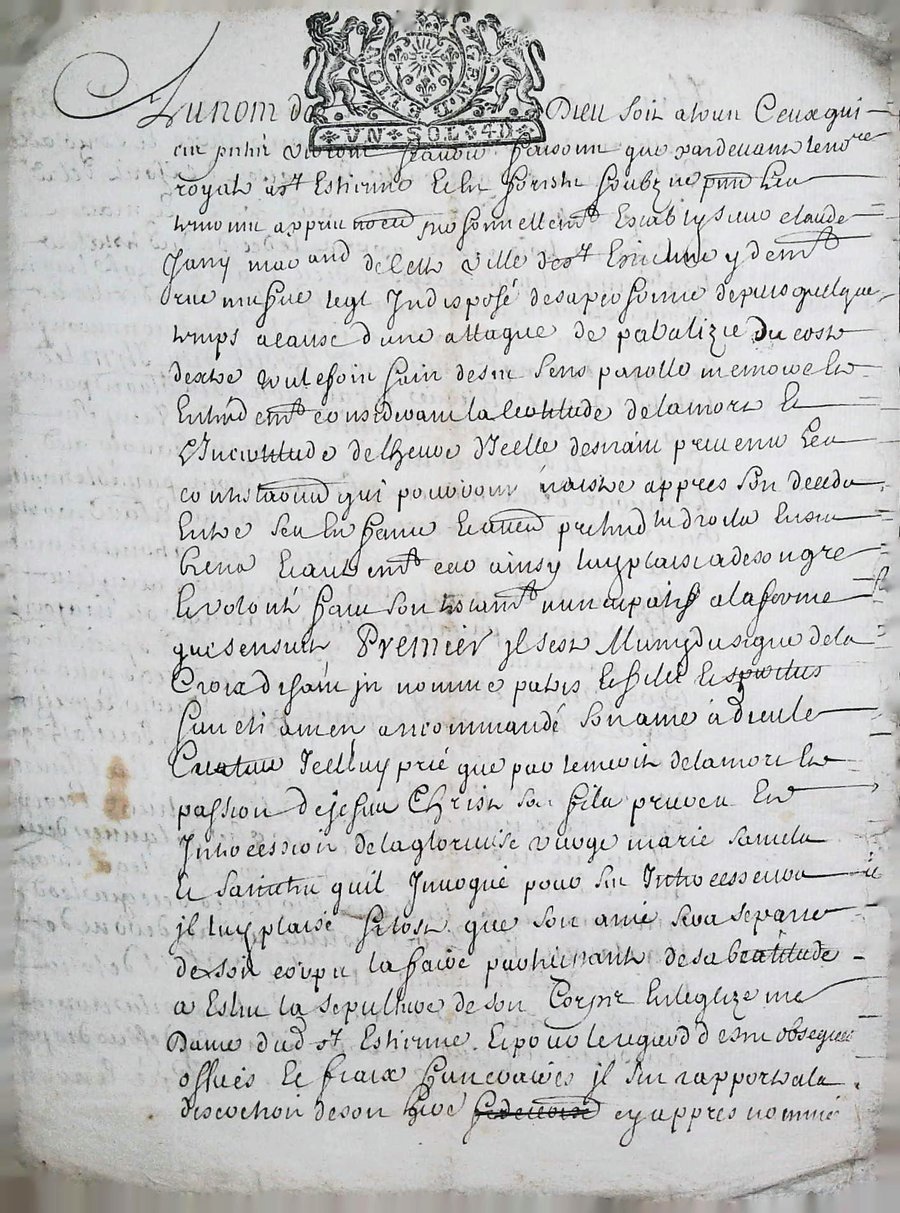 GEN.DE LION
UN SOL 4D
Au nom de Dieu soit a tous Ceux qui
ces pntes verront scavoir faisons que pardevant le no.re
royal a St Estienne En forestz soubzne
tesmoins appres nommes personnellemt Estably sieur claude
Jany marchand de cette ville de St Estienne y demt
rue legt Indisposé de sa personne depuis quelque
temps a cause d'une attaque de paralizie du coste
dextre toutefois sain de ses sens parolle memoire Et
Entendemt considerant la certitude de la mort Et
L'Incertitude de lheure d'Icelle desirant prevenir les
contestaons qui pourroient naistre appres son deceds
Entre ses Enfans Et autres pretendts droits En ses
biens Et autremt car ainsy luy plaist a de son gre
Et volonté fait son testamt nuncupatif a la forme
que sensuit Premier jl sest Muny du signe de la
Croix disant jn nomine patris Et filii Et spiritus
sancti amen a recommandé son ame à dieu le
Createur Icelluy prié que par le merite de la mort Et
passion de jesus Christ son fils prieres Et
Intercession de la glorieuse vierge marie saincts
Et sainctes quil Invoque pour ses Intercesseurs
jl luy plaise sitost que son ame sera separee
de son corps la faire participante de sa beatitude
a Eslu la sepulture de son Corps En leglize nre
Dame dud St Estienne Et pour le regard de ses obseques
offices Et fraix funeraires jl sen rapporte a la
discretion de son hers cy appres nommé